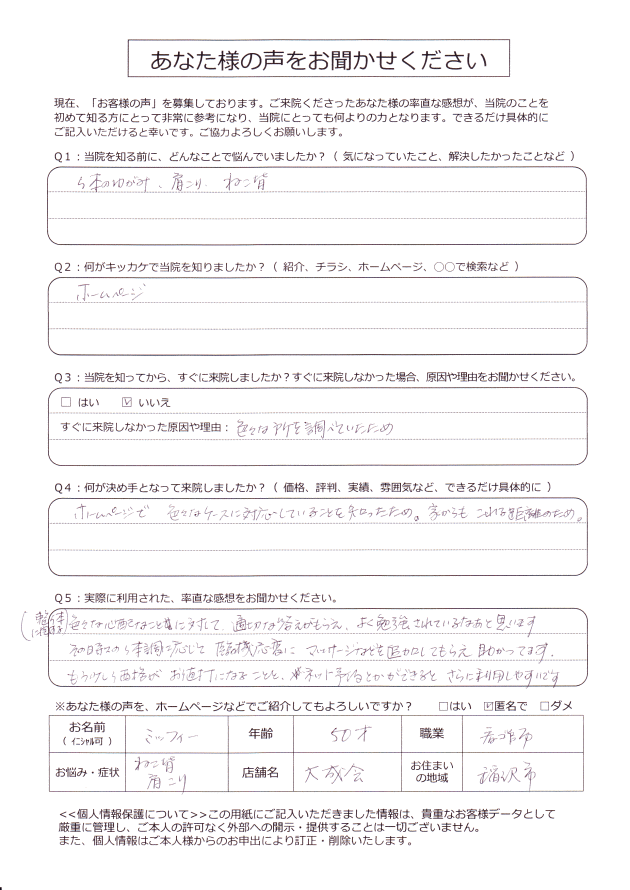 あなた様の声をお聞かせください
現在、「お客様の声」を募集しております。ご来院くださったあなた様の率直な感想が、当院のことを
初めて知る方にとって非常に参考になり、当院にとっても何よりの力となります。できるだけ具体的に
ご記入いただけると幸いです。ご協力よろしくお願いします。
Q1：当院を知る前に、どんなことで悩んでいましたか？（ 気になっていたこと、解決したかったことなど ）
体のゆがみ、肩こり、ねこ背
Q2：何がキッカケで当院を知りましたか？（ 紹介、チラシ、ホームページ、○○で検索など ）
ホームページ
Q3：当院を知ってから、すぐに来院しましたか？すぐに来院しなかった場合、原因や理由をお聞かせください。
□ はい ☑ いいえ
すぐに来院しなかった原因や理由： 色々な所を調べていたため
Q4：何が決め手となって来院しましたか？（ 価格、評判、実績、雰囲気など、できるだけ具体的に ）
ホームページで 色々なケースに対応していることを知ったため。家からも これる距離のため。
Q5：実際に利用された、率直な感想をお聞かせください。
(整体に関する) 色々な心配なこと等に対して、適切な答えがもらえ、よく勉強されているなあと思います
その日その日の体調に応じて 臨機応変に マッサージなどを追加してもらえ 助かってます。
もう少し 価格が お値打ちになることと、 に予約とかができると さらに利用しやすいです
※あなた様の声を、ホームページなどでご紹介してもよろしいですか？ □はい ☑匿名で □ダメ
お名前
（ イニシャル可 ） ミッフィー 年齢 50才 職業
お悩み・症状 ねこ背
肩こり 店舗名 大成会 お住まい
の地域 稲沢市
<<個人情報保護について>>この用紙にご記入いただきました情報は、貴重なお客様データとして
厳重に管理し、ご本人の許可なく外部への開示・提供することは一切ございません。
また、個人情報はご本人様からのお申出により訂正・削除いたします。